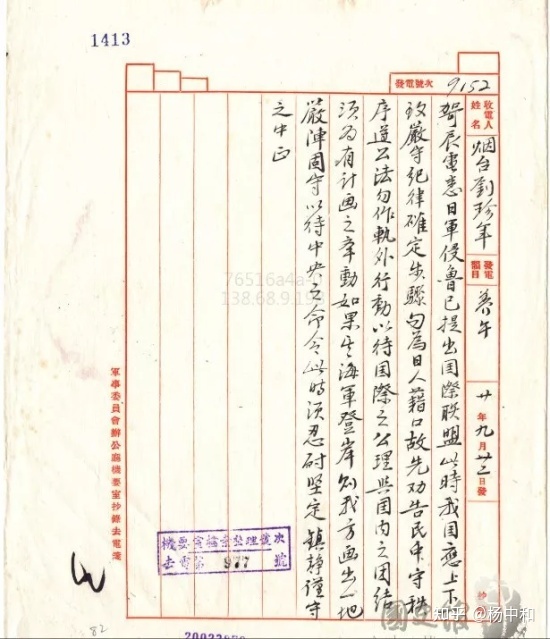 1413
發電號次 9152
收電人姓名 烟台劉珍年 發電韻目 養午 廿年九月廿二日發 抄
哿辰電悉日軍侵魯已提出国際联盟此時我国應上下一
致嚴守紀律確定步驟勿為日人藉口故先劝告民中守秩
序遵公法勿作軌外行動以待国際之公理與国内之团結
須為有計画之動如果其海軍登岸則我方画出一地
嚴陣固守以待中央之命令此時須忍耐坚定鎮静謹守
之中正
軍事委員會辦公廳機要室抄錄去電箋
機要室檔案整理號次
去電第 977 號
82
知乎 @杨中和